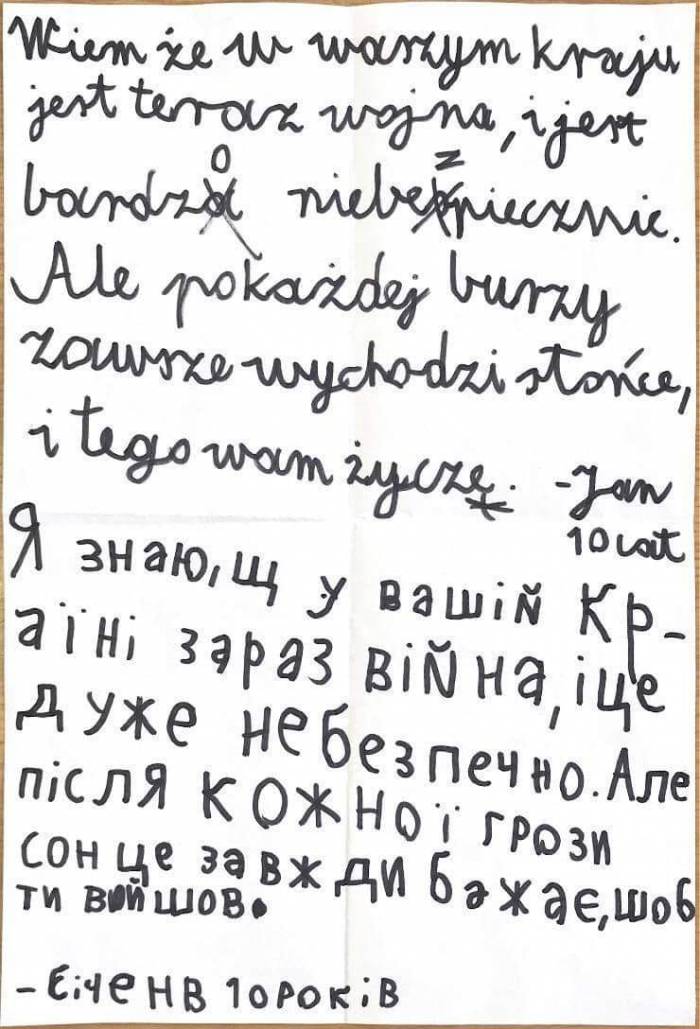 Wiem że w waszym kraju
jest teraz wojna, i jest
bardzo niebezpiecznie.
Ale pokażdej burzy
zawsze wychodzi słońce,
i tego wam życzę. -Jan
10 lat
Я знаю, щ у вашій кр-
аїні зараз війна, і це
дуже небезпечно. Але
після кожної грози
сонце завжди бажає, шоб
ти війшов.
- Січень 10 років